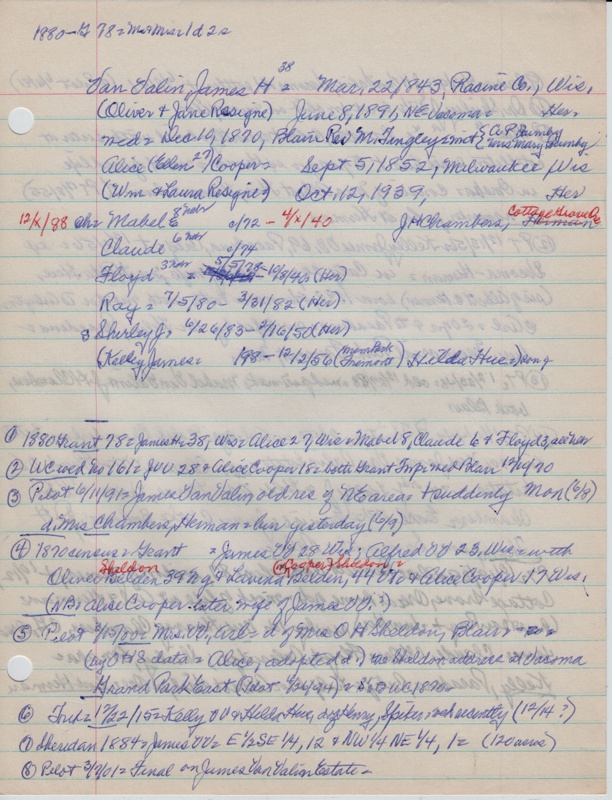 1880-Gr 78 = Mar Misc 1 d 2 s
Van Valin, James H 38 = Mar. 22/843, Racine Co., Wis,
(Oliver & Jane Resigne) June 8, 1891, NE Vacoma = Her
med = Dec 19, 1870, Blair Rev M Tingley = wit { A. P.
Mary
Alice (Ellen 27) Cooper = Sept 5, 1852, Milwaukee Wis
(Wm & Laura Resigne) Oct. 12, 1939, Her
12/x/88 ch = Mabel E 8 nes c/72 - 4/x/40 J H Chambers, Cottage Grove, Herman
Claude 6 nes c/74
Floyd 3 nes = 5/5/78 - 10/8/40 (Her)
Ray = 7/5/80 - 3/31/82 (Her)
3 Shirley J = 6/26/83 - 2/16/50 (Her)
(Kelly James = /98 - 12/2/56 (Mem Park Fremont) Hilda Hue = )
① 1880 Grant 78 = James H = 38, Wis = Alice 27, Wis = Mabel 8, Claude 6 & Floyd 3, all
② WC wed No 161 = JVV 28 & Alice Cooper 18 = both Grant Twp = wed Blair 12/19/70
③ Pilot 6/11/91 = James Van Valin old res of NE area = d suddenly Mon (6/8)
d. Mrs Chambers, Herman = bur yesterday (6/9)
④ 1870 census = Grant = James VV 28 Wis, Alfred VV 23, Wis = with
Sheldon (Cooper) Sheldon =
Oliver Belder 39 & Lavina Belder, 44 & Alice Cooper 17 Wis,
(NB = Alice Cooper later wife of James VV?)
⑤ Pilot = Mrs. VV, = d of Mrs O H Sheldon, Blair =
(by O & S data = Alice, adopted d) = Sheldon address at Vacoma
Grand Park East (Pilot
⑥ Trib = 12/22/15 = Kelly VV & Hilda Hue, d of Henry, wed recently (12/14?)
⑦ Sheridan 1884 = James VV = E 1/2 SE 1/4, 12 & NW 1/4 NE 1/4, 1 = (120 acres)
⑧ Pilot 3/7/01 = Final on James Van Valin Estate =